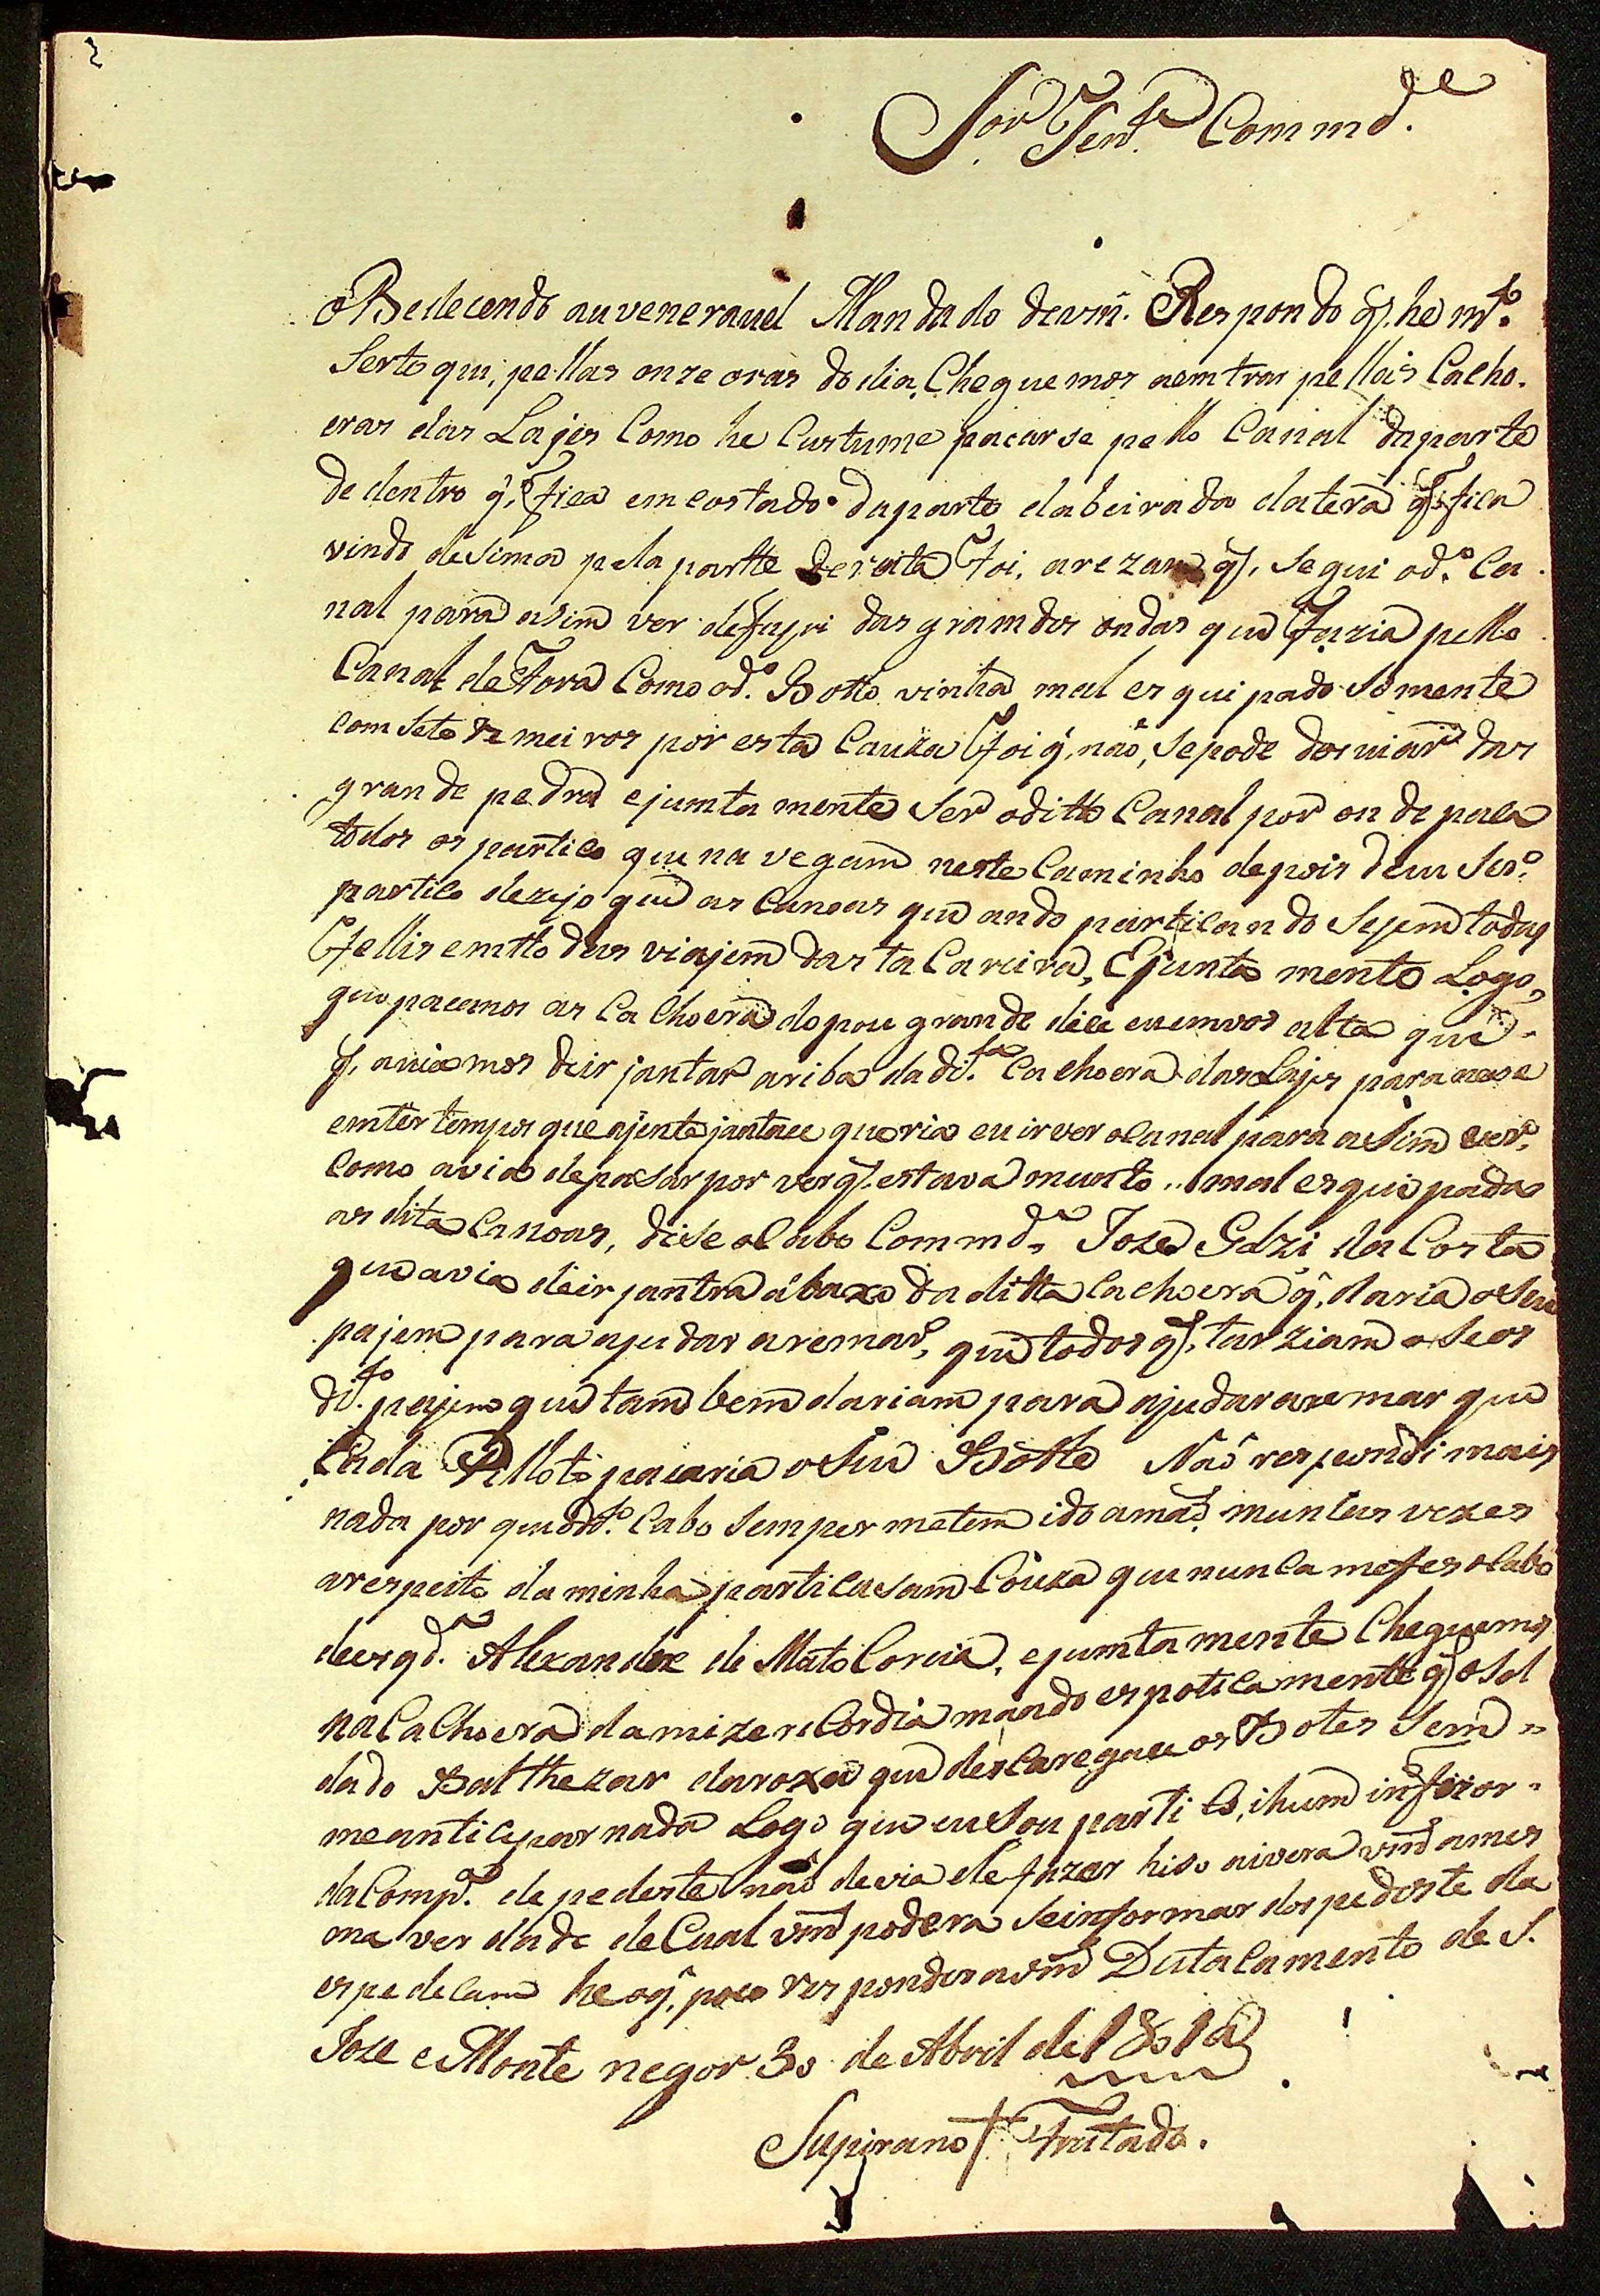 Sor. Tene. Commde.
oBedecendo au veneravel Mandado devm. Respondo q. he mto.
Serto qui, pellas onze oras do dia, Cheguemos aemtrar pellais Cacho.
eras das Lajes Como he Custume pacarse pello Canal daparte
de dentro q. fica emcostado daparte dabeirada daterã q. fica
vindo deSima pela partte dereita Foi, arezam q. Segui od.º Ca
nal para asim ver defugi das gramdes ondas que Fazia pello
Canal de Fora Como od.º Botto vinha mal esquipado Somente
com Sete Remeiros por esta Cauza Foi q. não, Sepode desviar das
grande pedra ejumtamente Ser oditto Canal por onde paca
todos os partico que navegam neste Caminho depois deu Ser.º
partico dezejo que as Canoas que ando particando Sejem todas
Fellis emtto das viajem dasta Careira, Ejunta mente Logo,
que pacemos as Cachoerã do pou grande dice euemvos alta que
q. aviamos deir jantar ariba da dita. Cachoera das Lajes para nese
emter tempo que ajente jantace queria eu ir ver ocanal para asim ver
Como avia depasar por ver q. estava munto .. mal esquipada
as dita Canoas, diSe oCabo Commde. Joze Glzi da Costa
que avia deir jantra abaxo da ditta Cachoera q. daria oSeu
pajem para ajudar aremar, que todos q. tarziam oSeos
dito. pajem que tambem dariam para ajudar aremar que
Cada Pilloto pacaria oSeu Botto Não respondi mais
nada por que odto. Cabo Semper metem ido amão muntas vezes
arespeito da minha particasam Couza que nunca mefes oCabo
deesqda. Alexandre de Mato Coreia, ejumtamente Cheguemos
na Cachoera da mizericordia mando espoticamente q. oSol
dado Balthezar daroxa que descaregace os Botes Sem
meanticipar nada Logo que euSou partico, ihum inferior
daCompa. de pedeste não devia de fazer hiso aivera vm ames
ma verdade deCual vm podera Seinformar dos pedeste da
espedicam he oq. poco responder avm Detacamento de S.
Joze eMonte negor 30 de Abril de 1812
Supirano † Frutado.